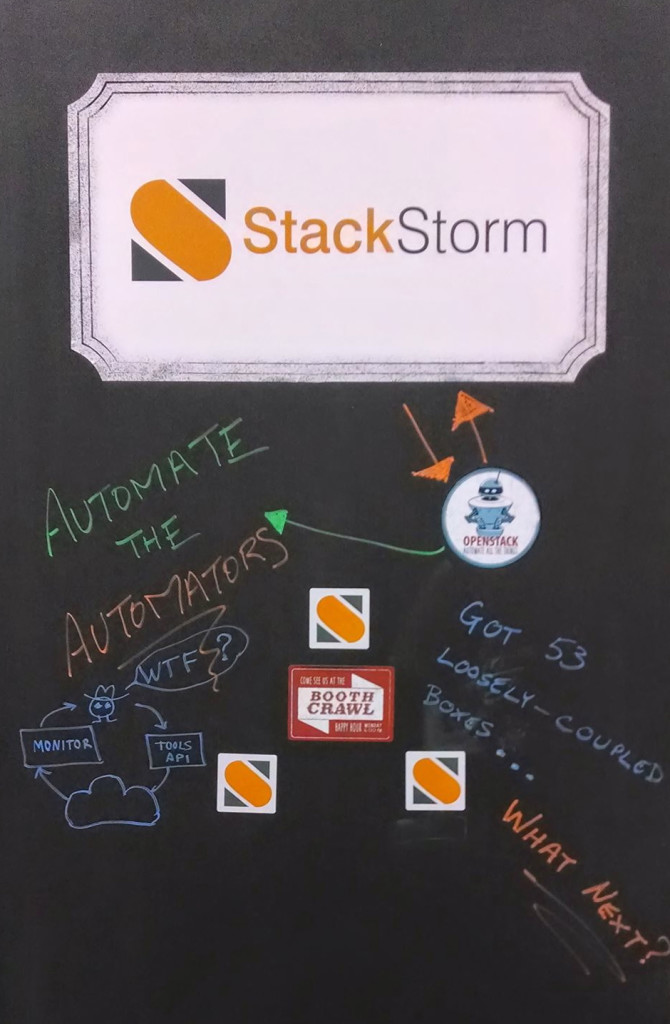 StackStorm
AUTOMATE
THE
AUTOMATORS
OPENSTACK
AUTOMATE ALL THE THINGS
WTF?
MONITOR
TOOLS
API
COME SEE US AT THE
BOOTH
CRAWL
HAPPY HOUR MONDAY
GOT 53
LOOSELY-COUPLED
BOXES...
WHAT NEXT?